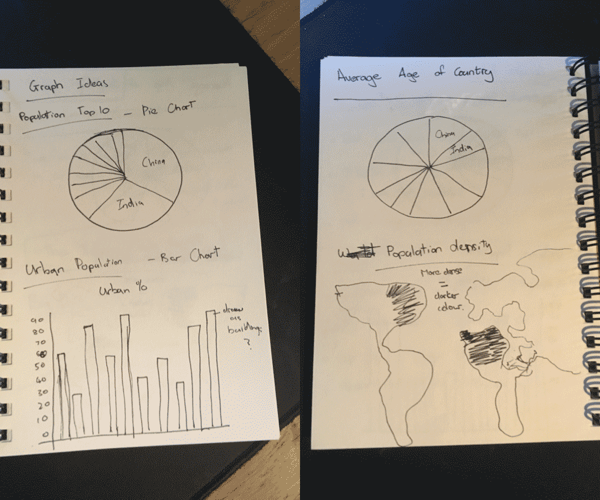 Graph Ideas
Population Top 10 - Pie Chart
China
India
Urban Population - Bar Chart
Urban %
90
80
70
60
50
40
30
20
10
0
draw
as
buildings
?
Average Age of Country
China
India
Population density
More dense
=
darker
colour.